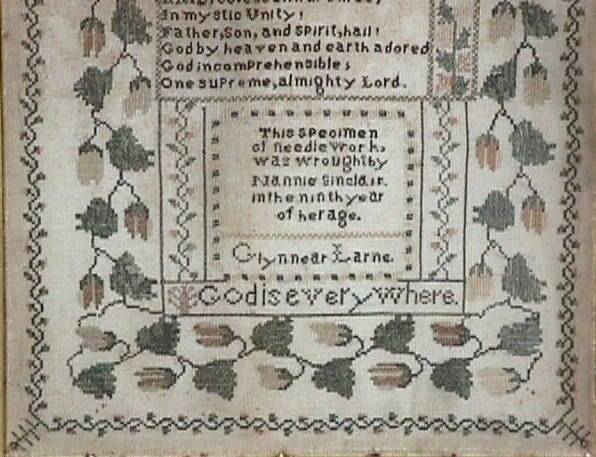 In mystic Unity;
Father, Son, and Spirit, hail!
God by heaven and earth adored
God incomprehensible;
One supreme, almighty Lord.
This specimen
of needle work
was wrought by
Nannie Sinclair.
in the ninth year
of her age.
Glynn near Larne.
God is every where.